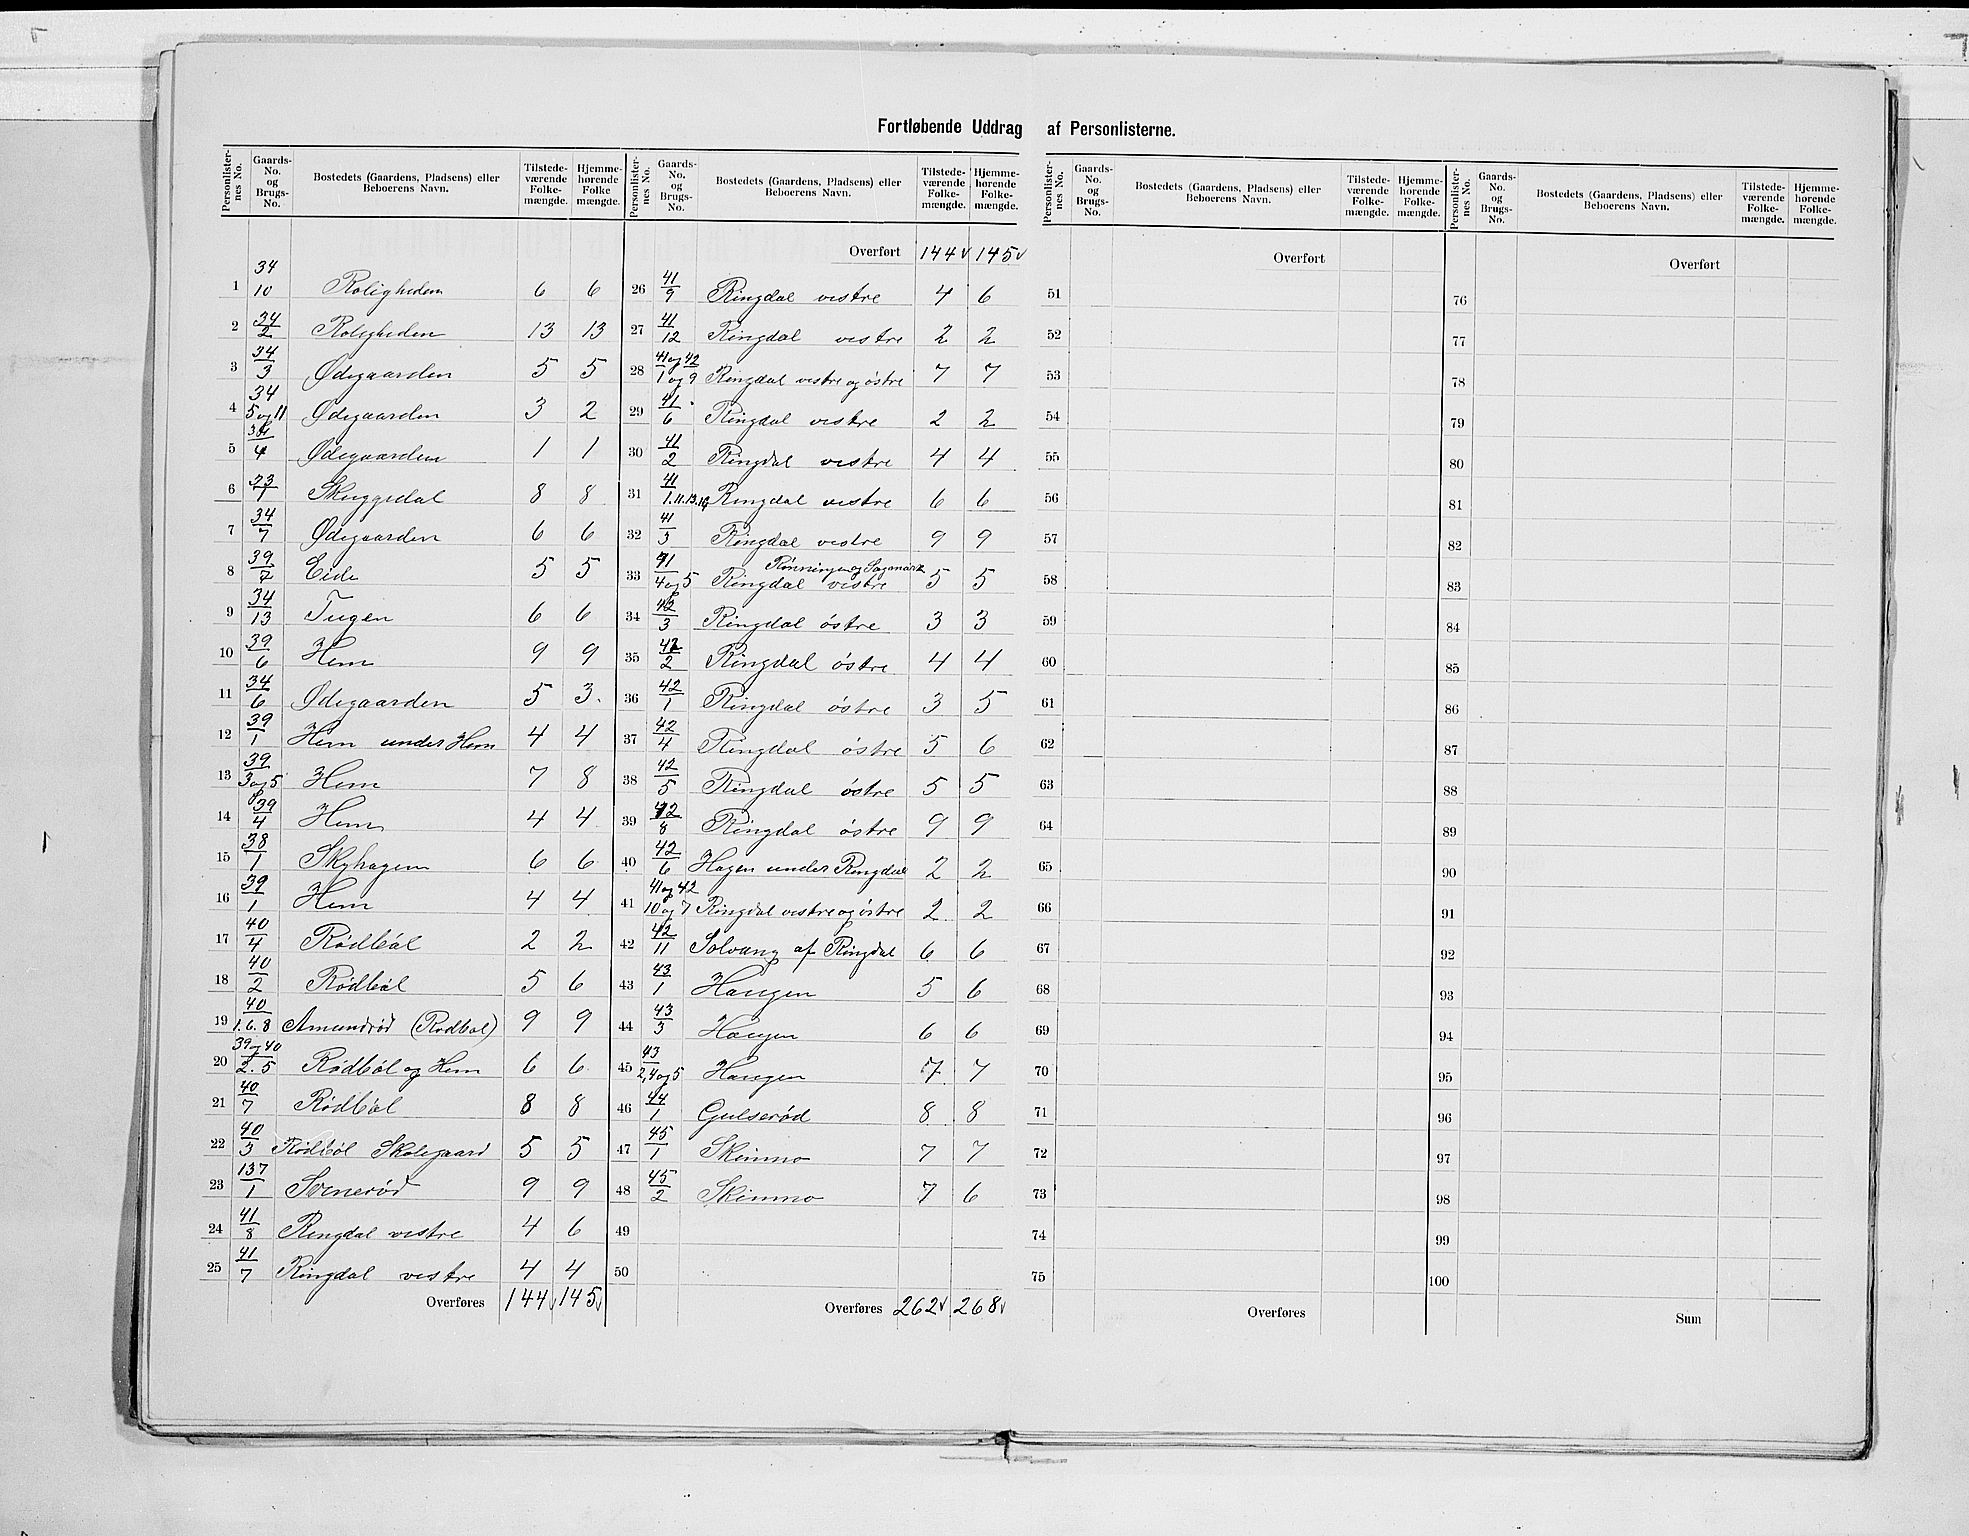 Fortløbende Uddrag af Personlisterne.
Personlisternes No. Gaards-No. og Brugs-No. Bostedets (Gaardens, Pladsens) eller Beboerens Navn. Tilstedeværende Folkemængde. Hjemmehørende Folkemængde.
1 34/10 Roligheden 6 6
2 34/2 Roligheden 13 13
3 34/3 Ødegaarden 5 5
4 34/5 og 11 Ødegaarden 3 2
5 34/4 Ødegaarden 1 1
6 33/1 Skuggedal 8 8
7 34/7 Ødegaarden 6 6
8 39/7 Eide 5 5
9 34/13 Tugen 6 6
10 39/6 Hem 9 9
11 34/6 Ødegaarden 5 3
12 39/1 Hem under Hem 4 4
13 39/3 og 5 Hem 7 8
14 39/4 Hem 4 4
15 38/1 Skyhagen 6 6
16 39/1 Hem 4 4
17 40/4 Rødbøl 2 2
18 40/2 Rødbøl 5 6
19 40/1.6.8 Amundrød (Rødbøl) 9 9
20 39 og 40/2.5 Rødbøl og Hem 6 6
21 40/7 Rødbøl 8 8
22 40/3 Rødbøl Skolegaard 5 5
23 137/1 Svenerød 9 9
24 41/8 Ringdal vestre 4 6
25 41/7 Ringdal vestre 4 4
Overføres 144 145
Personlisternes No. Gaards-No. og Brugs-No. Bostedets (Gaardens, Pladsens) eller Beboerens Navn. Tilstedeværende Folkemængde. Hjemmehørende Folkemængde.
Overført 144 145
26 41/9 Ringdal vestre 4 6
27 41/12 Ringdal vestre 2 2
28 41 og 42/1 og 9 Ringdal vestre og østre 7 7
29 41/6 Ringdal vestre 2 2
30 41/2 Ringdal vestre 4 4
31 41/1.11.13.14 Ringdal vestre 6 6
32 41/3 Ringdal vestre 9 9
Rønningen og Sagmark
33 41/4 og 5 Ringdal vestre 5 5
34 42/3 Ringdal østre 3 3
35 42/2 Ringdal østre 4 4
36 42/1 Ringdal østre 3 5
37 42/4 Ringdal østre 5 6
38 42/5 Ringdal østre 5 5
39 42/8 Ringdal østre 9 9
40 42/6 Hagen under Ringdal 2 2
41 41 og 42/10 og 7 Ringdal vestre og østre 2 2
42 42/11 Solvang af Ringdal 6 6
43 43/1 Haugen 5 6
44 43/3 Haugen 6 6
45 43/2,4 og 5 Haugen 7 7
46 44/1 Gulserød 8 8
47 45/1 Skimmo 7 7
48 45/2 Skimmo 7 6
49
50
Overføres 262 268
Personlisternes No. Gaards-No. og Brugs-No. Bostedets (Gaardens, Pladsens) eller Beboerens Navn. Tilstedeværende Folkemængde. Hjemmehørende Folkemængde.
Overført
51
52
53
54
55
56
57
58
59
60
61
62
63
64
65
66
67
68
69
70
71
72
73
74
75
Overføres
Personlisternes No. Gaards-No. og Brugs-No. Bostedets (Gaardens, Pladsens) eller Beboerens Navn. Tilstedeværende Folkemængde. Hjemmehørende Folkemængde.
Overført
76
77
78
79
80
81
82
83
84
85
86
87
88
89
90
91
92
93
94
95
96
97
98
99
100
Sum